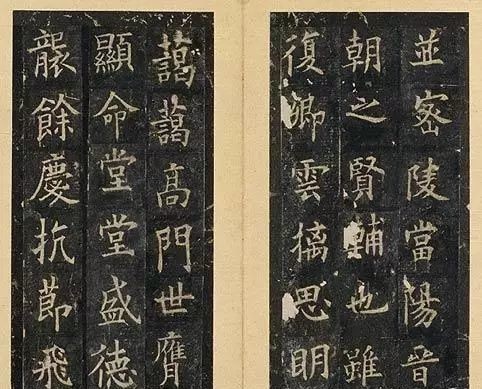 並密陵當陽晉
朝之賢輔也雖
復卿雲摛思眀
藹藹高門世膺
顯命堂堂盛德
襲餘慶抗莭飛